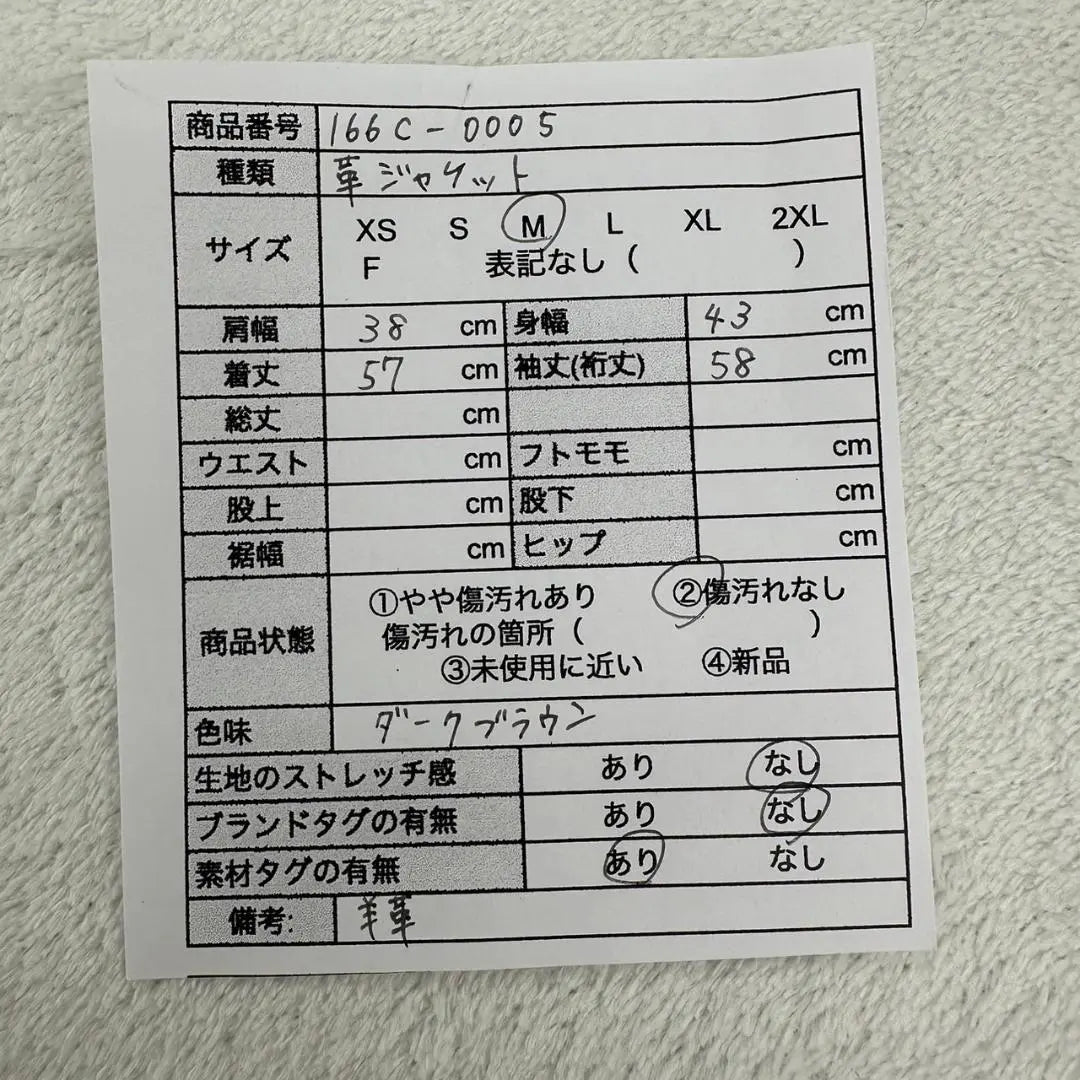 商品番号 166C-0005
種類 革ジャケット
サイズ XS S M L XL 2XL
F 表記なし ( )
肩幅 38 cm 身幅 43 cm
着丈 57 cm 袖丈(裄丈) 58 cm
総丈 cm
ウエスト cm フトモモ cm
股上 cm 股下 cm
裾幅 cm ヒップ cm
商品状態 ①やや傷汚れあり ②傷汚れなし
傷汚れの箇所 ( )
③未使用に近い ④新品
色味 ダークブラウン
生地のストレッチ感 あり なし
ブランドタグの有無 あり なし
素材タグの有無 あり なし
備考: 羊革